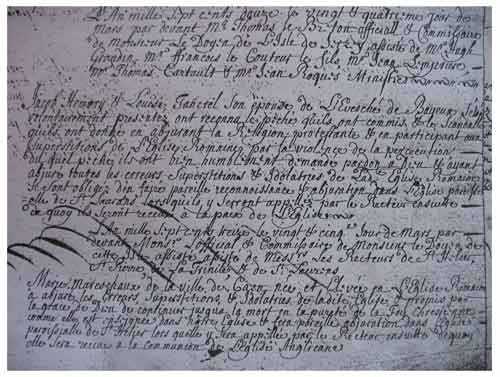 L'An mille sept cents douze le vingt & quatreme jour de
mars par devant Mr Thomas le official & Commissaire
de Monsieur Le Doyen de L'Isle de Jersey assiste de Mr
Mr Francois le Couteur le fils Mr Jean Lempriere
Mr Thomas & Mr Jean Ministres
Hemery & Louise Tancrel son épouse de L'Evesche de Bayeux se sont
volontairement presentez ont reconnu le peche qu'ils ont commis & le scandale
qu'ils ont donné en abjurant la Religion protestante & en participant aux
Superstitions de L'Eglise Romaine par la violence de la persecution
du quel peché ils ont bien humblement demandé pardon à Dieu & ayant
abjuré toutes les erreurs Superstitions & Idolatries de Lad. Eglise Romaine
se sont obligez d'en faire pareille reconnoissance & abjuration dans l'eglise paroissi
elle de lors qu'ils y seront appellez par le Recteur ensuitte
de quoy ils seront receus à la paix de L'Eglise
L'An mille sept cents treize le vingt & cinq. Jour de Mars par
devant Monsr L'official & Commissaire de Monsieur le Doyen de
cette Isle assisté de Messrs les Recteurs de St Helier,
St Pierre, La Trinité & de St Laurens
Marie de la ville de Caen née & Elevée en L'Eglise Romaine
a abjuré les Erreurs, Superstitions, & Idolatries de ladite Eglise & promis par
la grace de Dieu de continuer jusqu'a la mort en la pureté de la Foy Chretienne
comme elle est enseignée dans notre Eglise & fera pareille abjuration dans L'Eglise
paroissiale de St Helier lors quelle y sera appellée par le Recteur ensuitte dequoy
elle sera receue à la communion de L'Eglise Anglicane